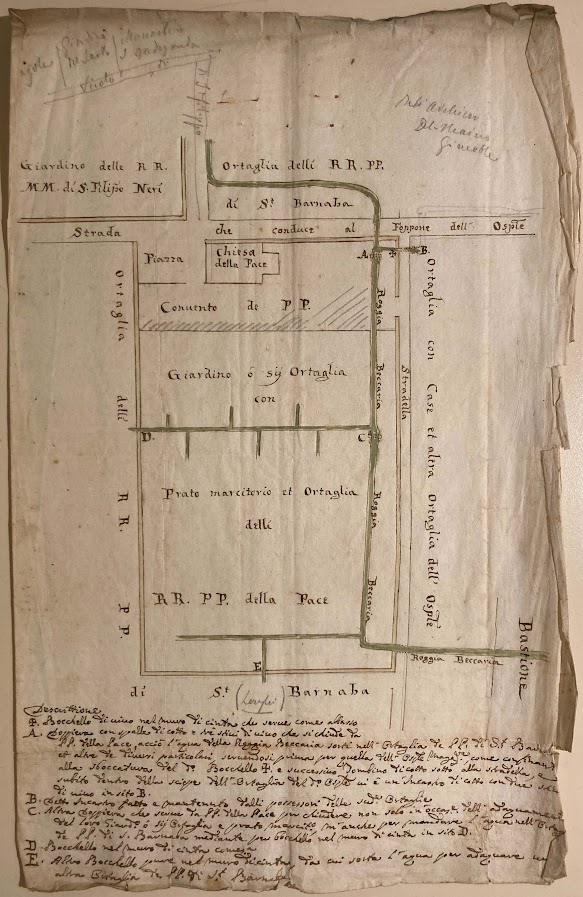 Monastero
Giardino delle R R.
MM. di S. Filippo Neri
Ortaglia delli RR. PP.
di St. Barnaba
Strada
che conduce al
Foppone dell' Osple
Piazza
Chiesa
della Pace
A.
B.
Roggia
Convento de PP.
Giardino ò sij Ortaglia
con
Beccaria
Stradella
Ortaglia con Case et altra Ortaglia dell' Osple
Ortaglia delli RR. PP.
D.
C.
Prato marcitorio et Ortaglia
delli
Roggia
RR. PP. della Pace
Beccaria
E
Roggia Beccaria
Bastione
di St. Barnaba
Descrittione
Bocchello di vivo nel muro di cinta che serve come abbasso
A. con spalle di cotto e trè stili di vivo che si chiude da
PP. della Pace, acciò l'acqua della Roggia Beccaria sorti nell' Ortaglia de PP. di St. Barnaba
et altre de diversi particolari, servendosi prima per quella dell'
alla sboccatura del do. Bocchello e successivo Tombino di cotto sotto alla stradella, e
subito dentro della siepe dell' Ortaglia del do. Osple vi è un Incastro di cotto con due
di vivo in sito B.
B. Detto Incastro fatto e mantenuto dalli possessori delle sude. Ortaglie
C. Altra che serve da PP. della Pace per chiudere non solo in occaone. dell' adaquamento
del loro Giardo. ò sij Ortaglia e prato marcito. m'anche per mandare l'acqua nell' Ortaglia
de PP. di S. Barnaba mediante per bochello nel muro di cinta in sito D.
D. Bocchello nel muro di cinta come sa.
E. Altro Bocchello pure nel muro di cinta, da cui sorte l'acqua per adaquare un
altra Ortaglia de PP. di St. Barnaba